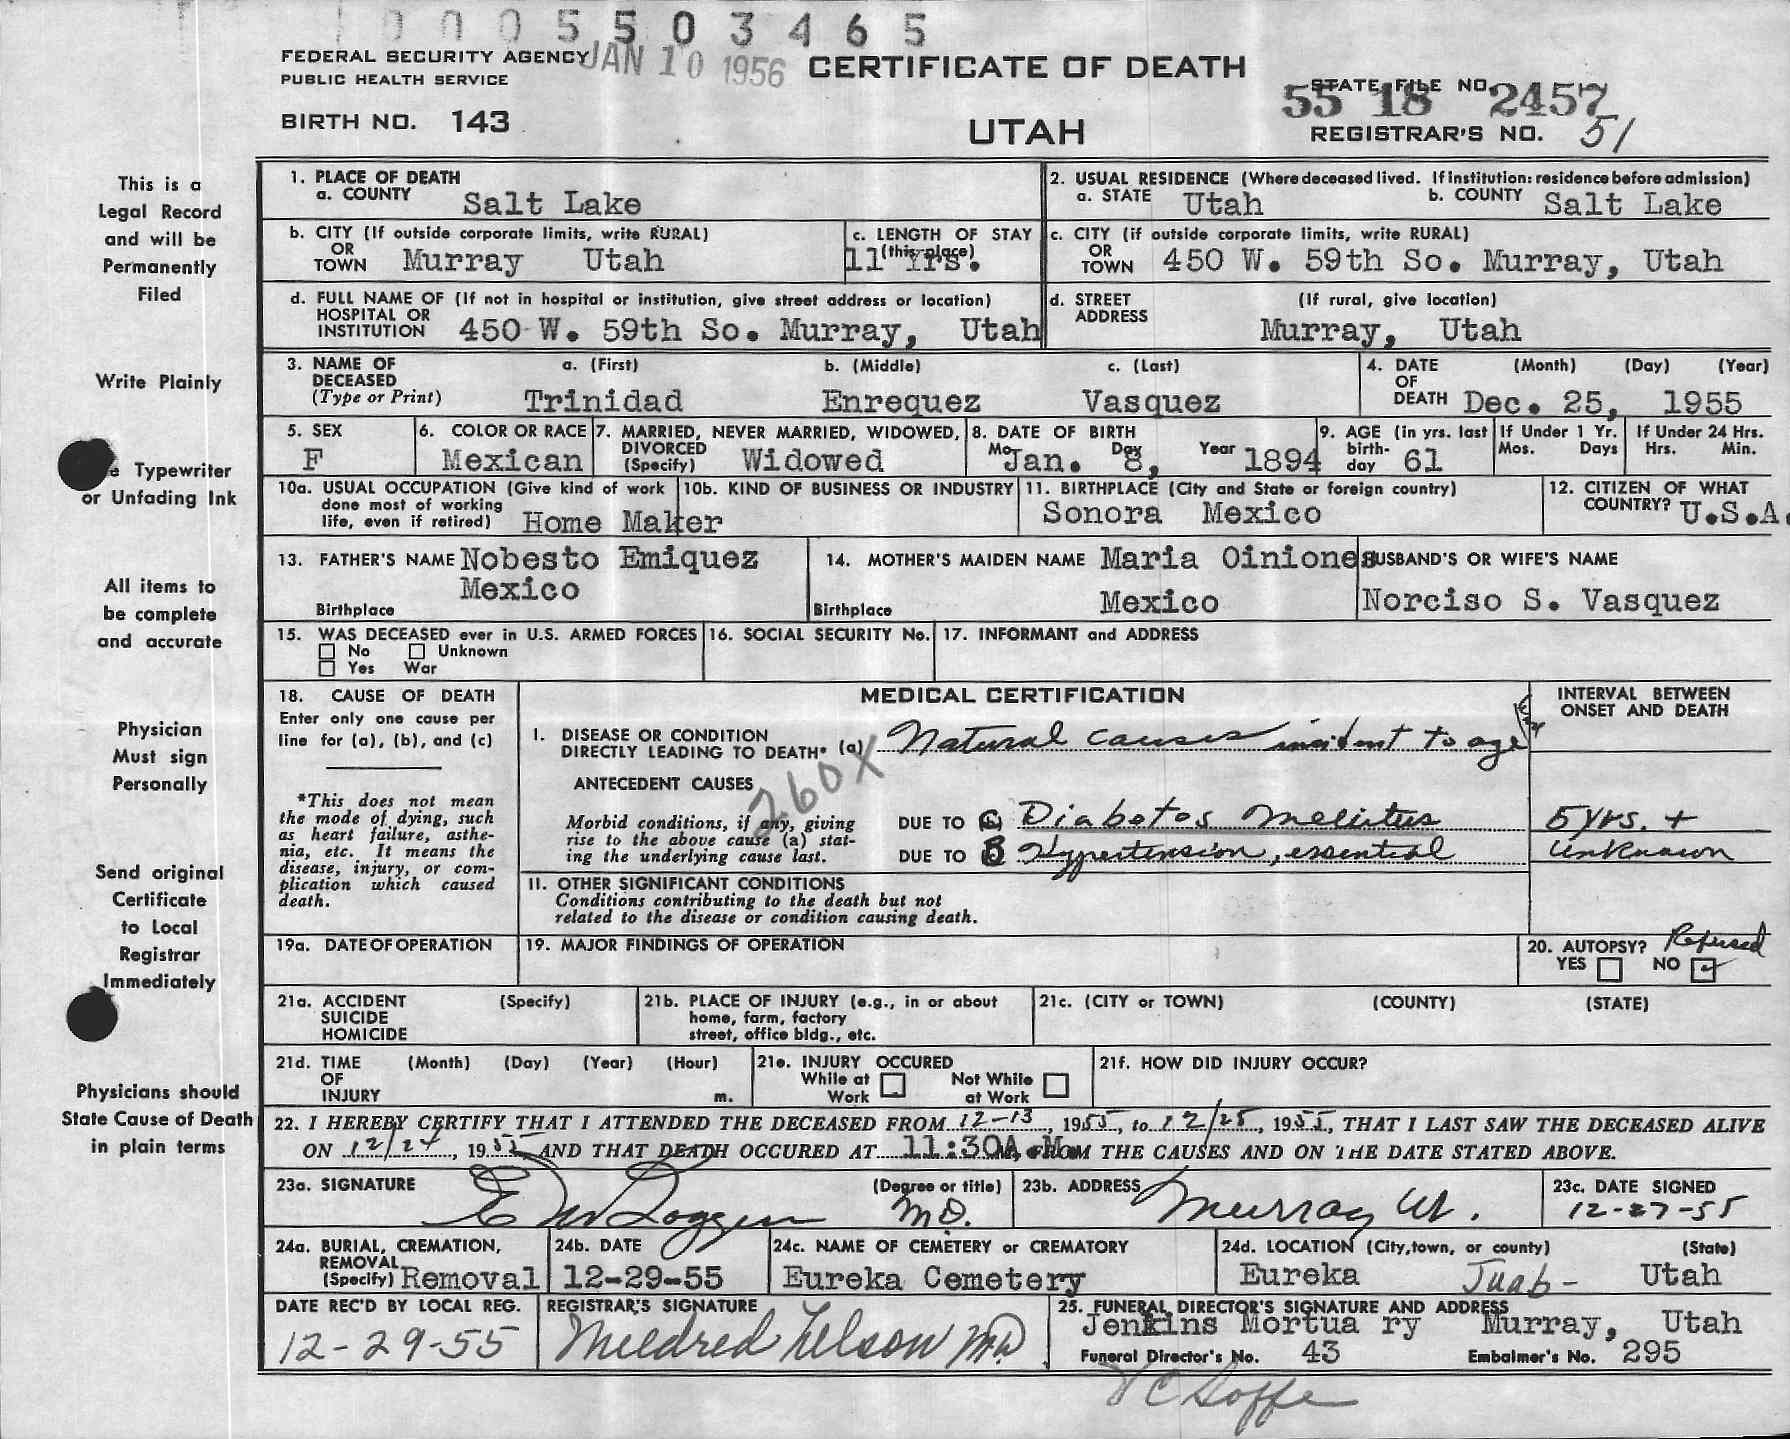 0005503465
FEDERAL SECURITY AGENCY JAN 10 1956 CERTIFICATE OF DEATH
PUBLIC HEALTH SERVICE
STATE FILE NO. 55 18 2457
BIRTH NO. 143 UTAH REGISTRAR'S NO. 51
This is a
Legal Record
and will be
Permanently
Filed
Write Plainly
Typewriter
or Unfading Ink
All items to
be complete
and accurate
Physician
Must sign
Personally
Send original
Certificate
to Local
Registrar
Immediately
Physicians should
State Cause of Death
in plain terms
1. PLACE OF DEATH
a. COUNTY Salt Lake
2. USUAL RESIDENCE (Where deceased lived. If institution: residence before admission)
a. STATE Utah b. COUNTY Salt Lake
b. CITY (If outside corporate limits, write RURAL)
OR
TOWN Murray Utah
c. LENGTH OF STAY
(this place)
11 Yrs.
c. CITY (if outside corporate limits, write RURAL)
OR
TOWN 450 W. 59th So. Murray, Utah
d. FULL NAME OF (If not in hospital or institution, give street address or location)
HOSPITAL OR
INSTITUTION 450 W. 59th So. Murray, Utah
d. STREET (If rural, give location)
ADDRESS
Murray, Utah
3. NAME OF a. (First) b. (Middle) c. (Last)
DECEASED
(Type or Print) Trinidad Enrequez Vasquez
4. DATE (Month) (Day) (Year)
OF
DEATH Dec. 25, 1955
5. SEX
F
6. COLOR OR RACE
Mexican
7. MARRIED, NEVER MARRIED, WIDOWED,
DIVORCED
(Specify) Widowed
8. DATE OF BIRTH
Mo. Jan. Day 8, Year 1894
9. AGE (in yrs. last
birth-
day 61
If Under 1 Yr.
Mos. Days
If Under 24 Hrs.
Hrs. Min.
10a. USUAL OCCUPATION (Give kind of work
done most of working
life, even if retired) Home Maker
10b. KIND OF BUSINESS OR INDUSTRY
11. BIRTHPLACE (City and State or foreign country)
Sonora Mexico
12. CITIZEN OF WHAT
COUNTRY? U.S.A.
13. FATHER'S NAME Nobesto Emiquez
Birthplace Mexico
14. MOTHER'S MAIDEN NAME Maria Oiniones
Birthplace Mexico
HUSBAND'S OR WIFE'S NAME
Norciso S. Vasquez
15. WAS DECEASED ever in U.S. ARMED FORCES
No Unknown
Yes War
16. SOCIAL SECURITY No.
17. INFORMANT and ADDRESS
18. CAUSE OF DEATH
Enter only one cause per
line for (a), (b), and (c)
*This does not mean
the mode of dying, such
as heart failure, asthe-
nia, etc. It means the
disease, injury, or com-
plication which caused
death.
MEDICAL CERTIFICATION
INTERVAL BETWEEN
ONSET AND DEATH
I. DISEASE OR CONDITION
DIRECTLY LEADING TO DEATH* (a) Natural causes incident to age
ANTECEDENT CAUSES
260X
Morbid conditions, if any, giving
rise to the above cause (a) stat-
ing the underlying cause last.
DUE TO C Diabetes Melitus 5 yrs. +
DUE TO B Hypertension, essential unknown
II. OTHER SIGNIFICANT CONDITIONS
Conditions contributing to the death but not
related to the disease or condition causing death.
19a. DATE OF OPERATION
19. MAJOR FINDINGS OF OPERATION
20. AUTOPSY? Refused
YES NO
21a. ACCIDENT (Specify)
SUICIDE
HOMICIDE
21b. PLACE OF INJURY (e.g., in or about
home, farm, factory
street, office bldg., etc.
21c. (CITY or TOWN) (COUNTY) (STATE)
21d. TIME (Month) (Day) (Year) (Hour)
OF
INJURY m.
21e. INJURY OCCURED
While at Work Not While at Work
21f. HOW DID INJURY OCCUR?
22. I HEREBY CERTIFY THAT I ATTENDED THE DECEASED FROM 12-13, 1955, to 12/25, 1955, THAT I LAST SAW THE DECEASED ALIVE
ON 12/24, 1955, AND THAT DEATH OCCURED AT 11:30A.M. FROM THE CAUSES AND ON THE DATE STATED ABOVE.
23a. SIGNATURE (Degree or title)
M.D.
23b. ADDRESS Murray Ut.
23c. DATE SIGNED
12-27-55
24a. BURIAL, CREMATION,
REMOVAL
(Specify) Removal
24b. DATE
12-29-55
24c. NAME OF CEMETERY or CREMATORY
Eureka Cemetery
24d. LOCATION (City, town, or county) (State)
Eureka Juab - Utah
DATE REC'D BY LOCAL REG.
12-29-55
REGISTRAR'S SIGNATURE
Mildred Nelson MD
25. FUNERAL DIRECTOR'S SIGNATURE AND ADDRESS
Jenkins Mortua ry Murray, Utah
Funeral Director's No. 43 Embalmer's No. 295